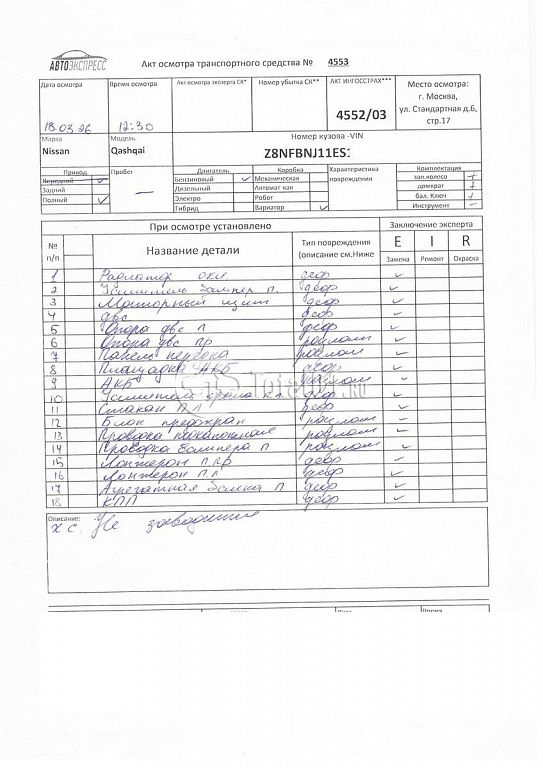 АВТОЭКСПРЕСС
Акт осмотра транспортного средства № 4553
Дата осмотра
18.03.26
Время осмотра
12:30
Акт осмотра эксперта СК*
Номер убытка СК**
АКТ ИНГОССТРАХ***
4552/03
Место осмотра:
г. Москва,
ул. Стандартная д.6,
стр.17
Марка
Nissan
Модель
Qashqai
Номер кузова -VIN
Z8NFBNJ11ES
Привод
Передний ✓
Задний
Полный ✓
Пробег
—
Двигатель
Бензиновый ✓
Дизельный
Электро
Гибрид
Коробка
Механическая
Автомат кая
Робот
Вариатор ✓
Характеристика
повреждения
Комплектация
зап.колесо +
домкрат +
бал. Ключ +
Инструмент —
При осмотре установлено
Заключение эксперта
№
п/п
Название детали
Тип повреждения
(описание см.Ниже
E I R
Замена Ремонт Окраска
1 Радиатор охл. деф ✓
2 Усилитель бампер п. деф ✓
3 Моторный щит деф ✓
4 ДВС деф ✓
5 Опора двс л деф ✓
6 Опора двс пр разлом ✓
7 Панель передка разлом ✓
8 Площадка АКБ деф ✓
9 АКБ разлом ✓
10 Усилитель крыла п.л деф ✓
11 Стакан п.л деф ✓
12 Блок предохран разлом ✓
13 Проводка подкапотная разлом ✓
14 Проводка бампера п разлом ✓
15 Лонжерон п.пр деф ✓
16 Лонжерон п.л деф ✓
17 Агрегатная балка п деф ✓
18 КПП деф ✓
Описание:
Не